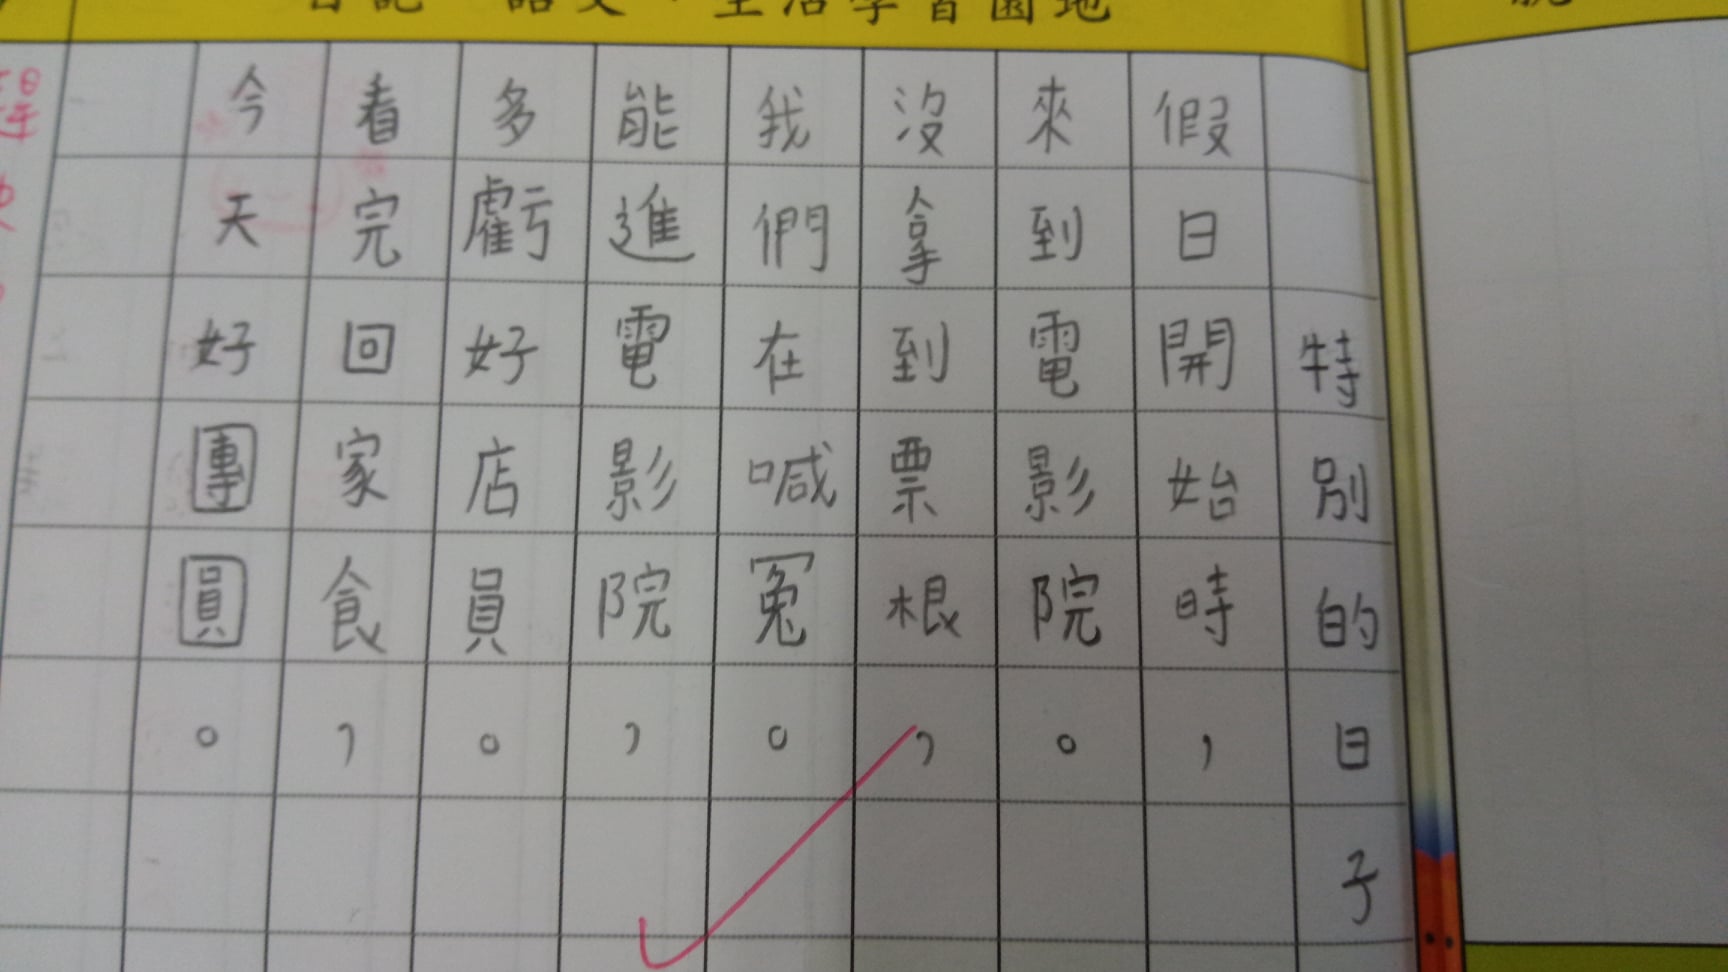 日記、語文、生活學習園地
特別的日子
假日開始時，
來到電影院。
沒拿到票根，
我們在喊冤。
能進電影院，
多虧好店員。
看完回家食，
今天好團圓。